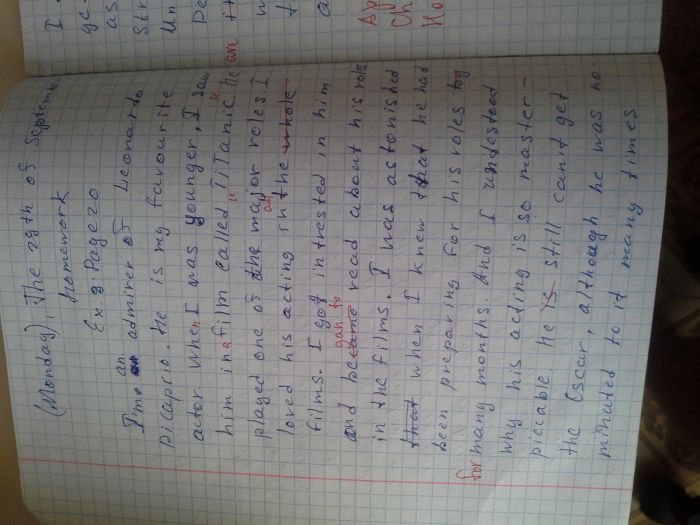 (Monday), The 29th of September.
Homework
Ex. 9. Page 20
an
I'm an admirer of Leonardo
Dicaprio. He is my favourite
actor. When I was younger, I saw
him in a film called "TiTanic". He
played one of the major roles. I
all
loved his acting in the whole
films. I got intrested in him
gan to
and became read about his role
in the films. I was astonished
that when I knew that he had
been preparing for his roles by
for many months. And I understood
why his acting is so master-
piecable. He is still can't get
the Oscar, although he was no-
minated to it many times